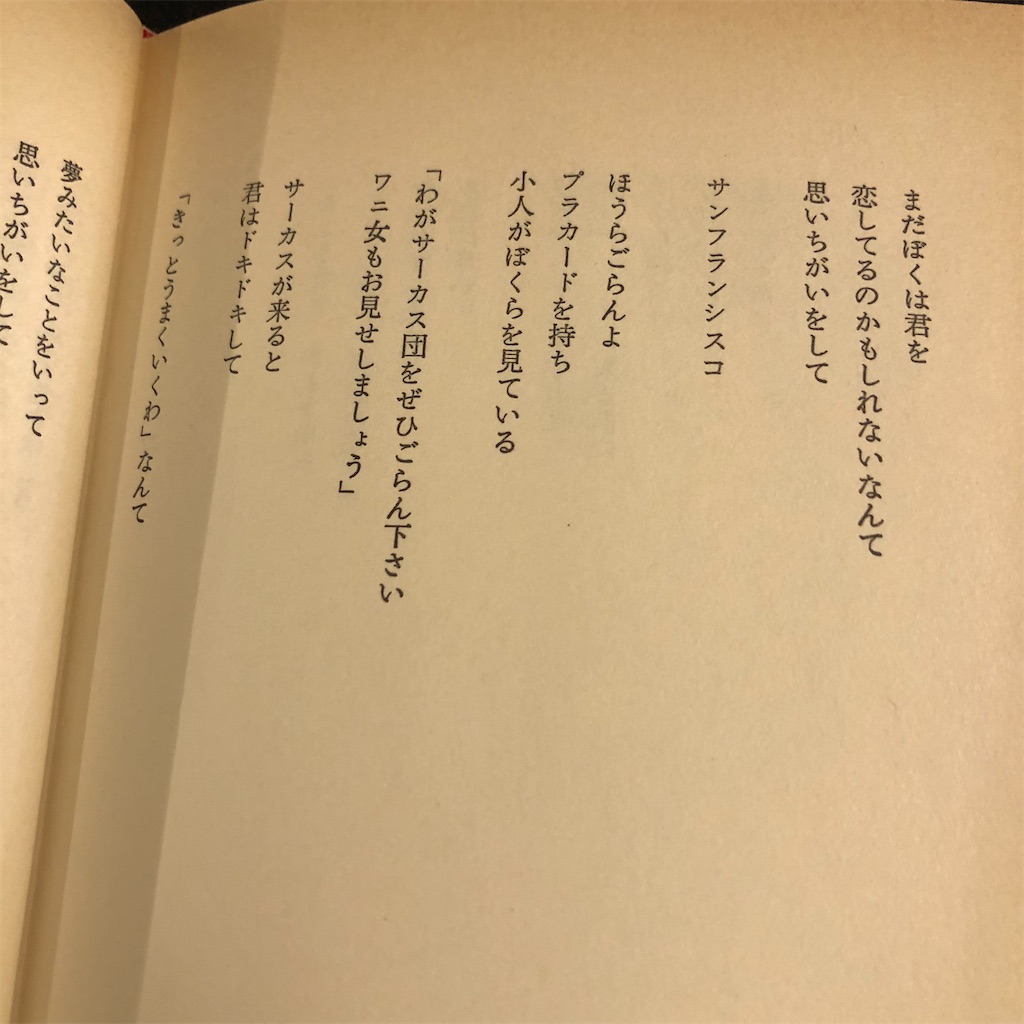 まだぼくは君を
恋してるのかもしれないなんて
思いちがいをして
サンフランシスコ
ほうらごらんよ
プラカードを持ち
小人がぼくらを見ている
「わがサーカス団をぜひごらん下さい
ワニ女もお見せしましょう」
サーカスが来ると
君はドキドキして
「きっとうまくいくわ」なんて
夢みたいなことをいって
思いちがいをして